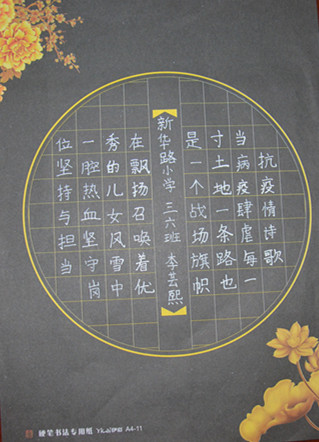 抗疫情诗歌
当病疫肆虐每一
寸土地一条路也
是一个战场旗帜
新华路小学 三六班 李芸熙
在飘扬召唤着优
秀的儿女风雪中
一腔热血坚守岗
位坚持与担当
硬笔书法专用纸 A4-11